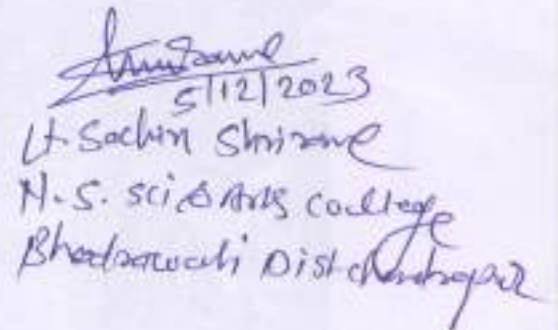 5/12/2023
Lt. Sachin Shrirame
N. S. Sci & Arts College
Bhadrawati Dist. Chandrapur